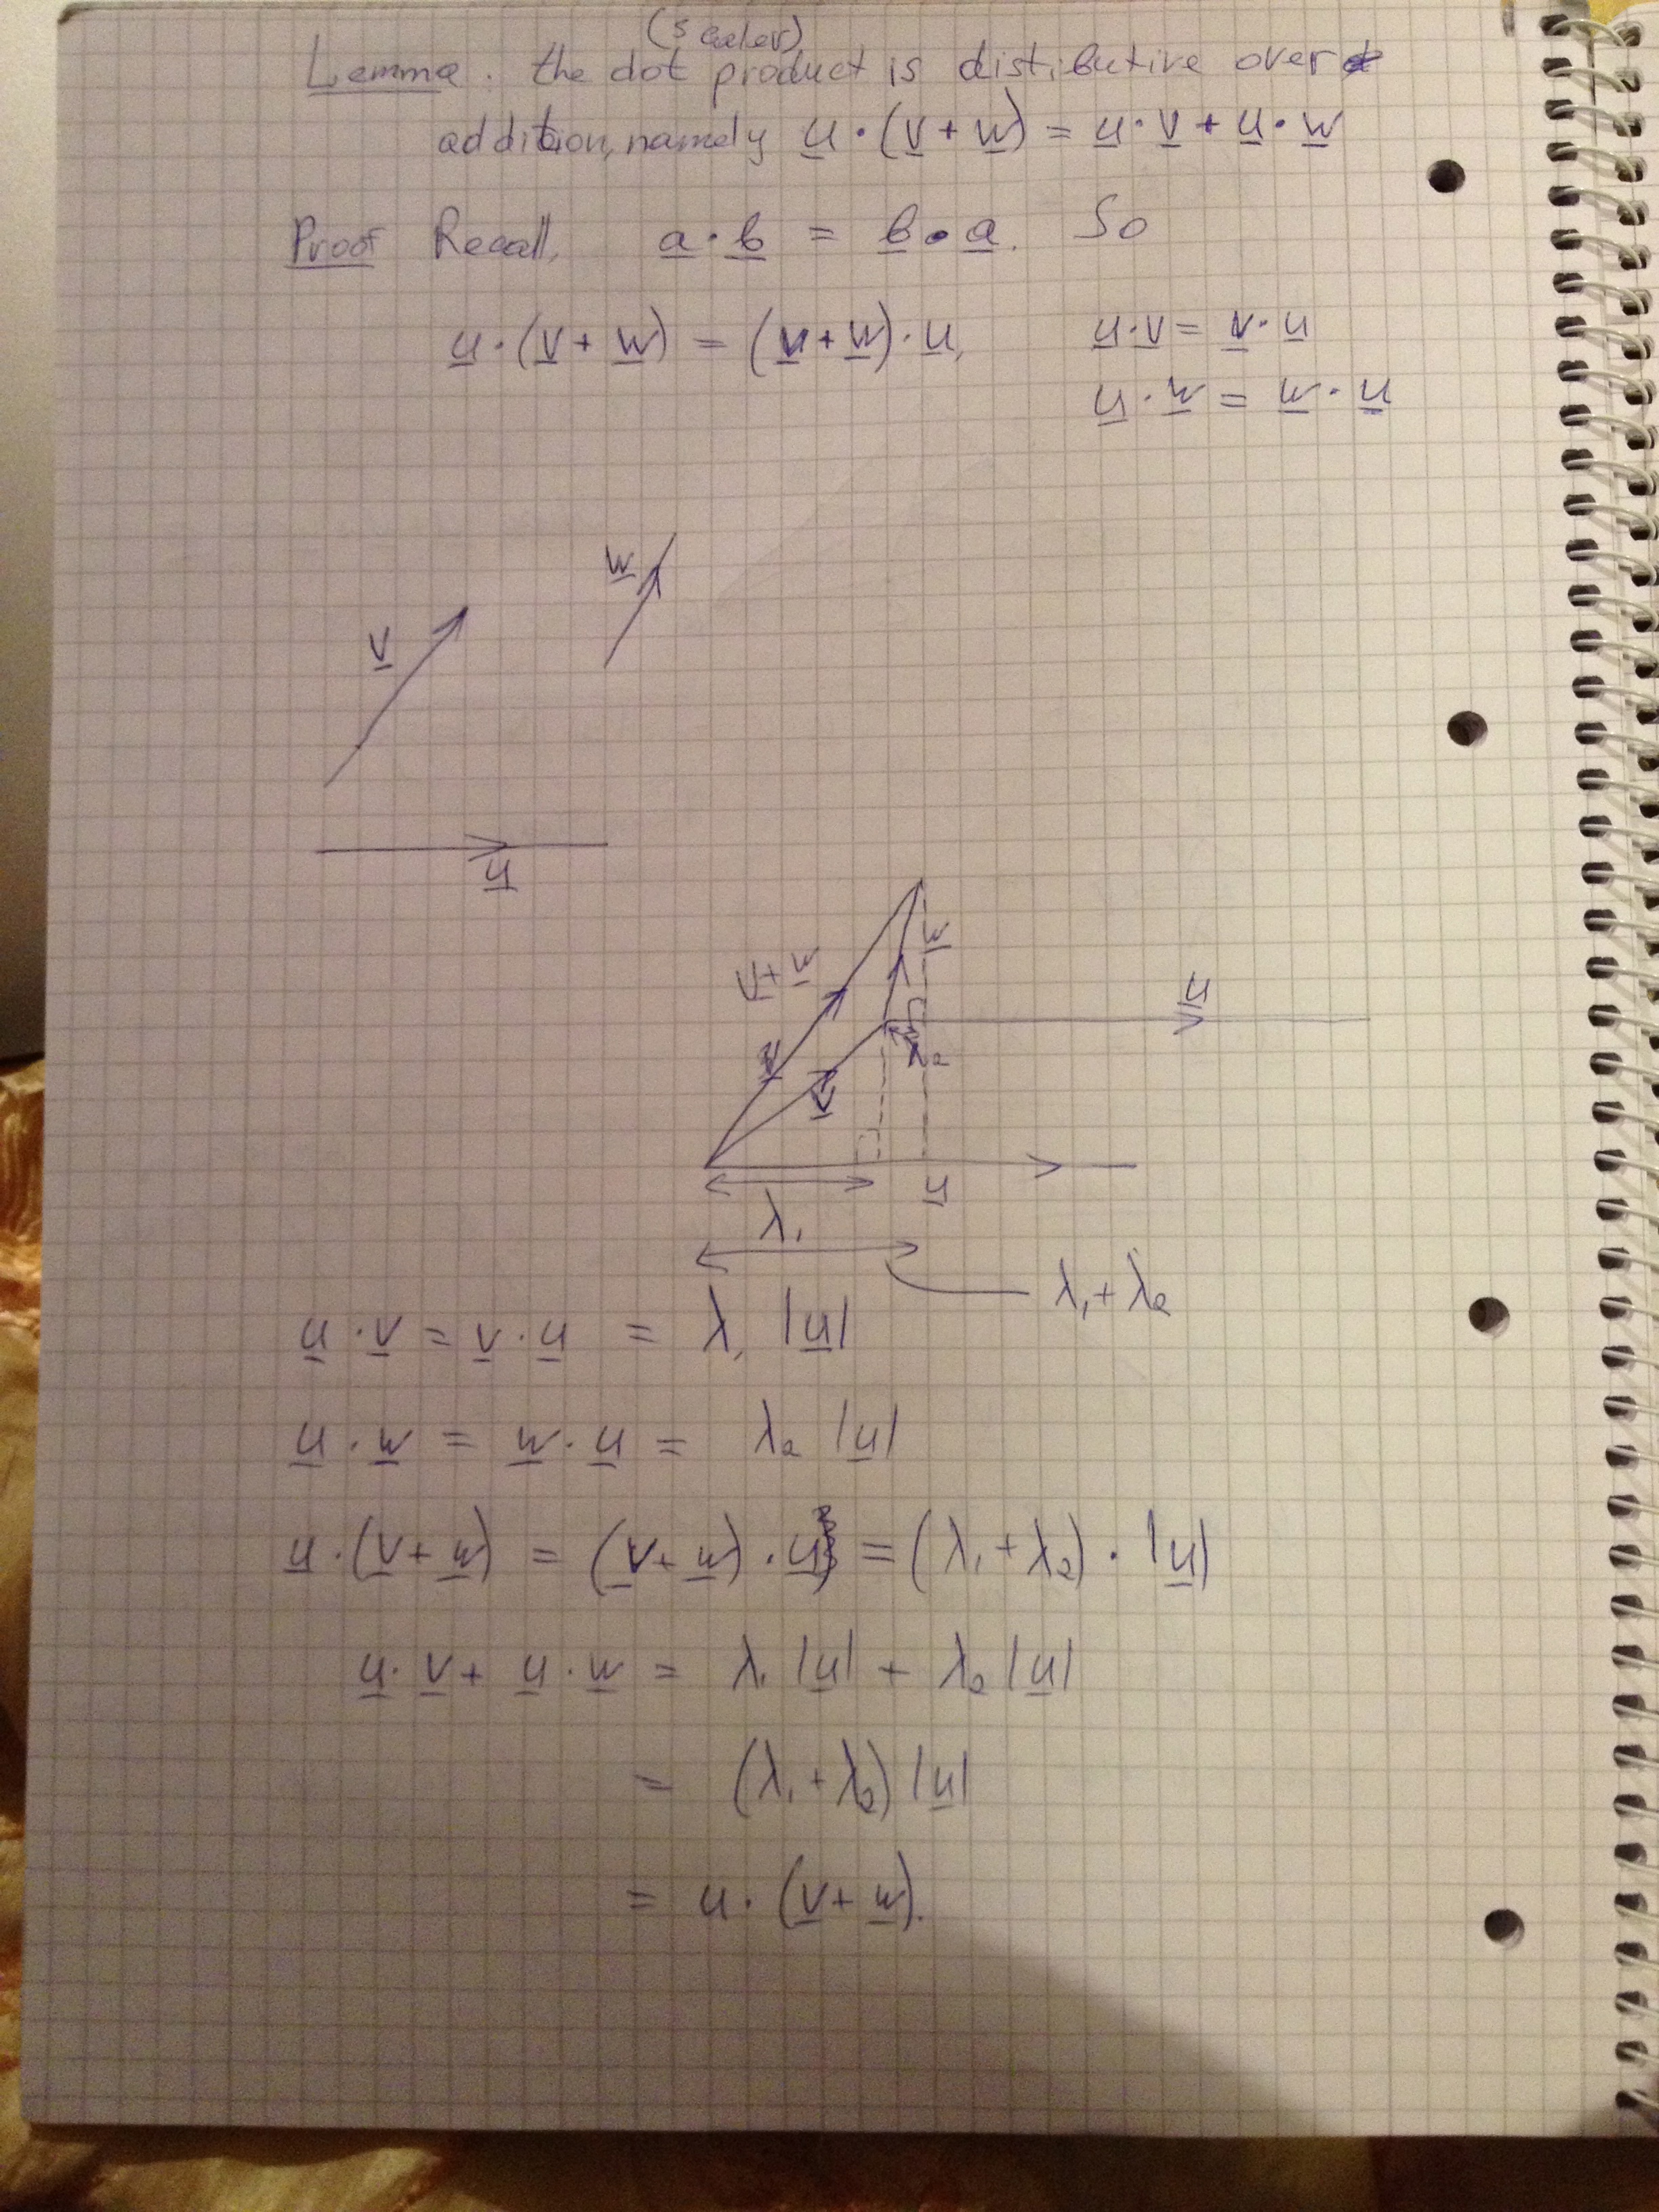 (scaler)
Lemma. the dot product is distributive over
addition, namely u · (v + w) = u · v + u · w
Proof Recall, a · b = b · a. So
u · (v + w) = (v + w) · u, u · v = v · u
u · w = w · u
w
v
u
w
v + w
u
λ₂
v
u
λ₁
λ₁ + λ₂
u · v = v · u = λ₁ |u|
u · w = w · u = λ₂ |u|
u · (v + w) = (v + w) · u = (λ₁ + λ₂) · |u|
u · v + u · w = λ₁ |u| + λ₂ |u|
= (λ₁ + λ₂) |u|
= u · (v + w).